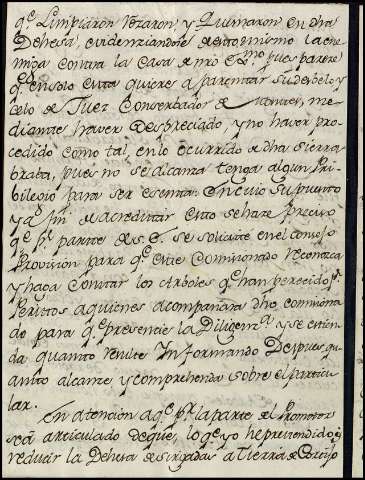 qe Limpiaron Rozaron y Quemaron en dha
Dehesa, evidenziandose de esto mismo la ene-
miga contra la Casa de mi Exmo pues parece
qe en solo esta quiere aparentar su desvelo y
celo de Juez Conserbador de montes, me-
diante haver despreciado, y no haver pro-
cedido como tal en lo ocurrido de dha Sierra
braba, pues no se alcanza tenga algun Pri-
bilegio para ser esenta: En cuio supuesto
y a fin de acreditar esto se hace preciso
qe pr parte de S. E. se solicite en el Consejo
Provision para qe este Comisionado reconozca
y haga contar los Arboles qe han perecido pr
Peritos a quienes acompañara dho comisiona
do para qe presencie la Diligenca y se estien
da quanto resulte Informando Despues qu
anto alcante y comprehenda sobre el particu
lar.
En atencion a qe pr la parte el Promotor
se á articulado de que, lo qe yo he pretendido es
reducir la Dehesa de a Tierra de Cortijo